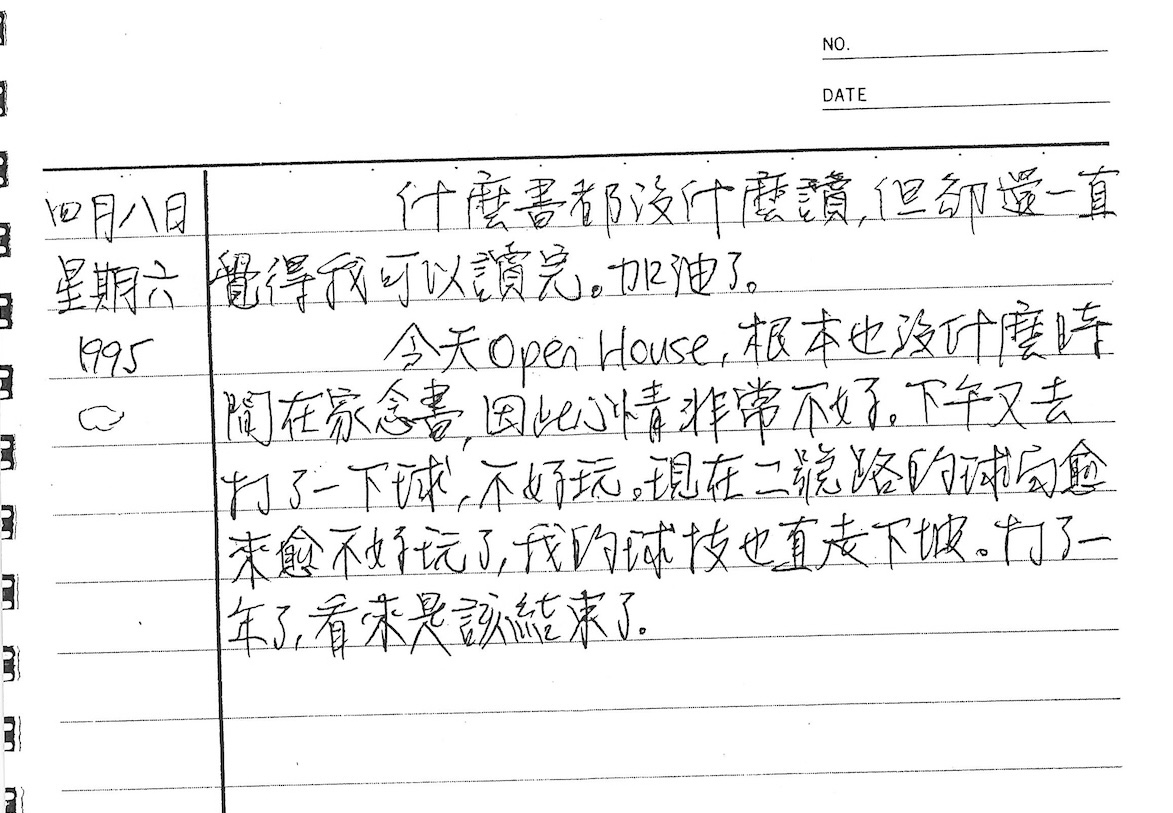 NO.
DATE
四月八日
星期六
1995
什麼書都沒什麼讀,但卻還一直
覺得我可以讀完。加油了。
今天Open House,根本也沒什麼時
間在家念書,因此心情非常不好。下午又去
打了一下球,不好玩。現在二號路的球局愈
來愈不好玩了,我的球技也直走下坡。打了一
年了,看來是該結束了。